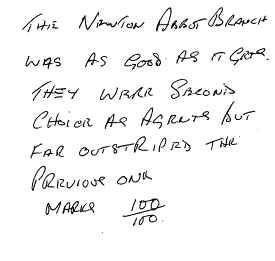 THE NEWTON ABBOT BRANCH
WAS AS GOOD AS IT GETS.
THEY WERE SECOND
CHOICE AS AGENTS BUT
FAR OUTSTRIPED THE
PREVIOUS ONE
MARKS 100/100.